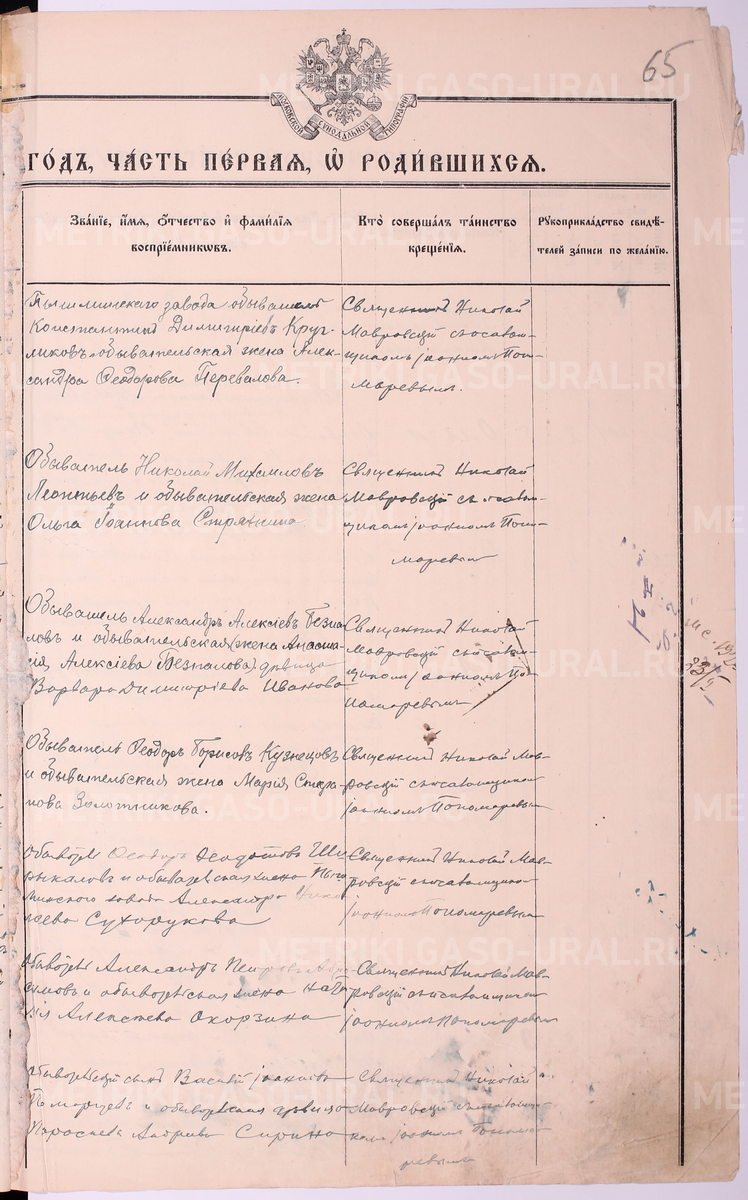 65
МОСКОВСКОЙ СУНОДАЛЬНОЙ ТИПОГРАФІИ
ГОДЪ, ЧАСТЬ ПЕРВАЯ, Ѡ РОДИВШИХСЯ.
Званіе, имя, отчество и фамилія
воспріемниковъ.
Кто совершалъ таинство
крещенія.
Рукоприкладство свидѣ-
телей записи по желанію.
Пышминскаго завода обыватель
Константинъ Димитріевъ Круг-
ликовъ и обывательская жена Алек-
сандра Ѳеодорова Перевалова.
Священникъ Николай
Мавровскій съ псалом-
щикомъ Іоанномъ Поно-
маревымъ.
Обыватель Николай Михаиловъ
Леонтьевъ и обывательская жена
Ольга Іоаннова Стряхнина
Священникъ Николай
Мавровскій съ псалом-
щикомъ Іоанномъ Поно-
маревымъ
Обыватель Александръ Алексіевъ Безпа-
ловъ и обывательская (жена Анаста-
сія Алексіева Безпалова) дѣвица
Варвара Димитріева Иванова
Священникъ Николай
Мавровскій съ псалом-
щикомъ Іоанномъ По-
номаревымъ
Обыватель Ѳеодоръ Борисовъ Кузнецовъ
и обывательская жена Марія Стефа-
нова Золотникова.
Священникъ Николай Мав-
ровскій съ псаломщикомъ
Іоанномъ Пономаревымъ
Ѳеодоръ Ѳеодотовъ
жена Пыш-
минского завода Александра Нико-
лаева Сухорукова
Священникъ Николай Мав-
ровскій съ псаломщикомъ
Іоанномъ Пономаревымъ
Александръ Петровъ
жена
Алексѣева
Священникъ Николай Мав-
ровскій съ псаломщикомъ
Іоанномъ Пономаревымъ
сынъ Василій
и дѣвица
Священникъ Николай
Мавровскій съ псаломщи-
комъ Іоанномъ Поно-
маревымъ
METRIKI.GASO-URAL.RU